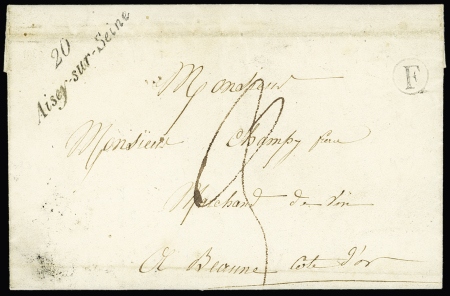 20
Aisey-sur-Seine
F
Monsieur
Monsieur Champy
Marchand de vin
A Beaune Cote d'or